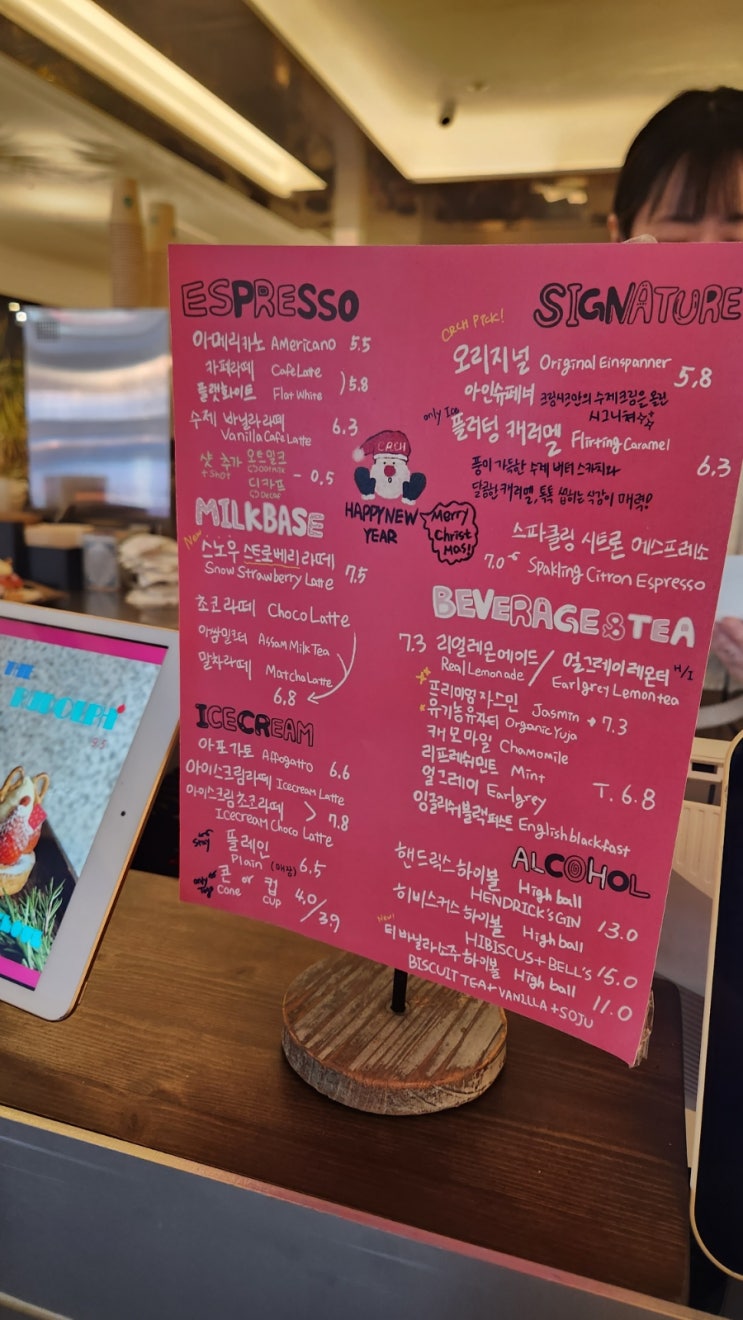 ESPRESSO
아메리카노 Americano 5.5
카페라떼 Cafe Latte
플랫화이트 Flat White
) 5.8
수제 바닐라 라떼 6.3
Vanilla Cafe Latte
샷 추가 오트밀크
+Shot
디카프 - 0.5
Decaf
MILKBASE
New
스노우 스트로베리 라떼
Snow Strawberry Latte 7.5
초코라떼 Choco Latte
아쌈밀크티 Assam Milk Tea
말차라떼 Matcha Latte
6.8
ICECREAM
아포가토 Affogatto 6.6
아이스크림라떼 Icecream Latte
아이스크림초코라떼 > 7.8
Icecream Choco Latte
플레인
Plain (매장) 6.5
콘 or 컵 4.0/3.9
Cone cup
CRCH
HAPPY NEW
YEAR
Merry
Christ
mas!
SIGNATURE
CRCH PICK!
오리지널 Original Einspanner
아인슈페너 5,8
시그니쳐
only Ice
플러팅 캐러멜 Flirting Caramel
풍미 가득한 수제 버터스카치와 6.3
달콤한 캐러멜, 톡톡 씹히는 식감이 매력!
스파클링 시트론 에스프레소
7.0 Spakling Citron Espresso
BEVERAGE & TEA
7.3 리얼레몬에이드 / 얼그레이레몬티 H/I
Real Lemonade Earlgrey Lemontea
프리미엄 자스민 Jasmin 7.3
유기농유자티 Organic Yuja
캐모마일 Chamomile
리프레쉬민트 Mint
얼그레이 Earlgrey T. 6.8
잉글리쉬블랙퍼스트 English blackfast
ALCOHOL
핸드릭스 하이볼 High ball
HENDRICK'S GIN 13.0
히비스커스 하이볼 High ball
HIBISCUS + BELL'S 15.0
New!
티 바닐라 소주 하이볼 High ball
BISCUIT TEA + VANILLA + SOJU 11.0